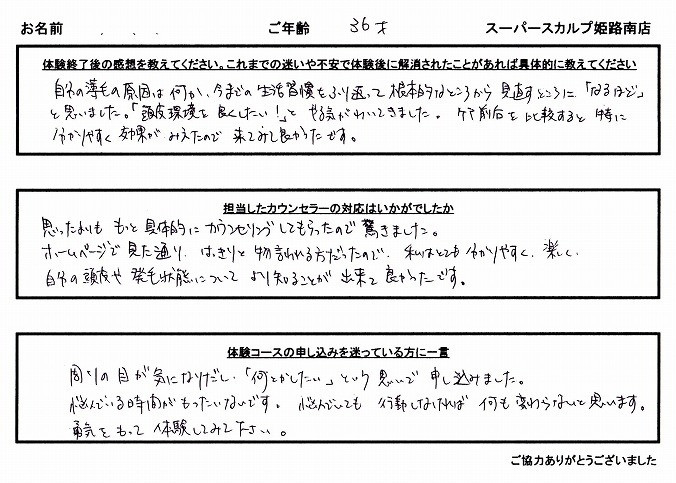 お名前 ご年齢 36才 スーパースカルプ姫路南店
体験終了後の感想を教えてください。これまでの迷いや不安で体験後に解消されたことがあれば具体的に教えてください
自分の薄毛の原因は何か、今までの生活習慣をふり返って根本的なところから見直すところに「なるほど」
と思いました。「頭皮環境を良くしたい!」と やる気がわいてきました。ケア前后を比較すると特に
分かりやすく効果がみえたので 来てみて良かったです。
担当したカウンセラーの対応はいかがでしたか
思ったよりも もっと具体的にカウンセリングしてもらったので驚きました。
ホームページで見た通り、はっきりと物言われる方だったので、私はとても分かりやすく、楽しく、
自分の頭皮や発毛状態について より知ることが出来て良かったです。
体験コースの申し込みを迷っている方に一言
周りの目が気になりだし、「何とかしたい」という思いで申し込みました。
悩んでいる時間がもったいないです。悩んでいても 行動しなければ 何も変わらないと思います。
勇気をもって体験してみて下さい。
ご協力ありがとうございました